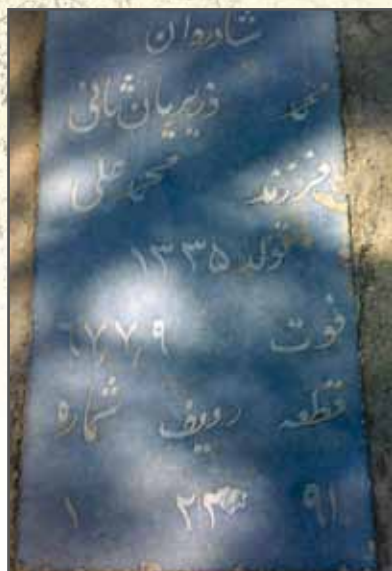 شادروان
محمد وزیریان ثانی
فرزند محمد علی
تولد ۱۳۳۵
فوت ۶۷٫۷٫۹
قطعه ردیف شماره
۹۱ ۱